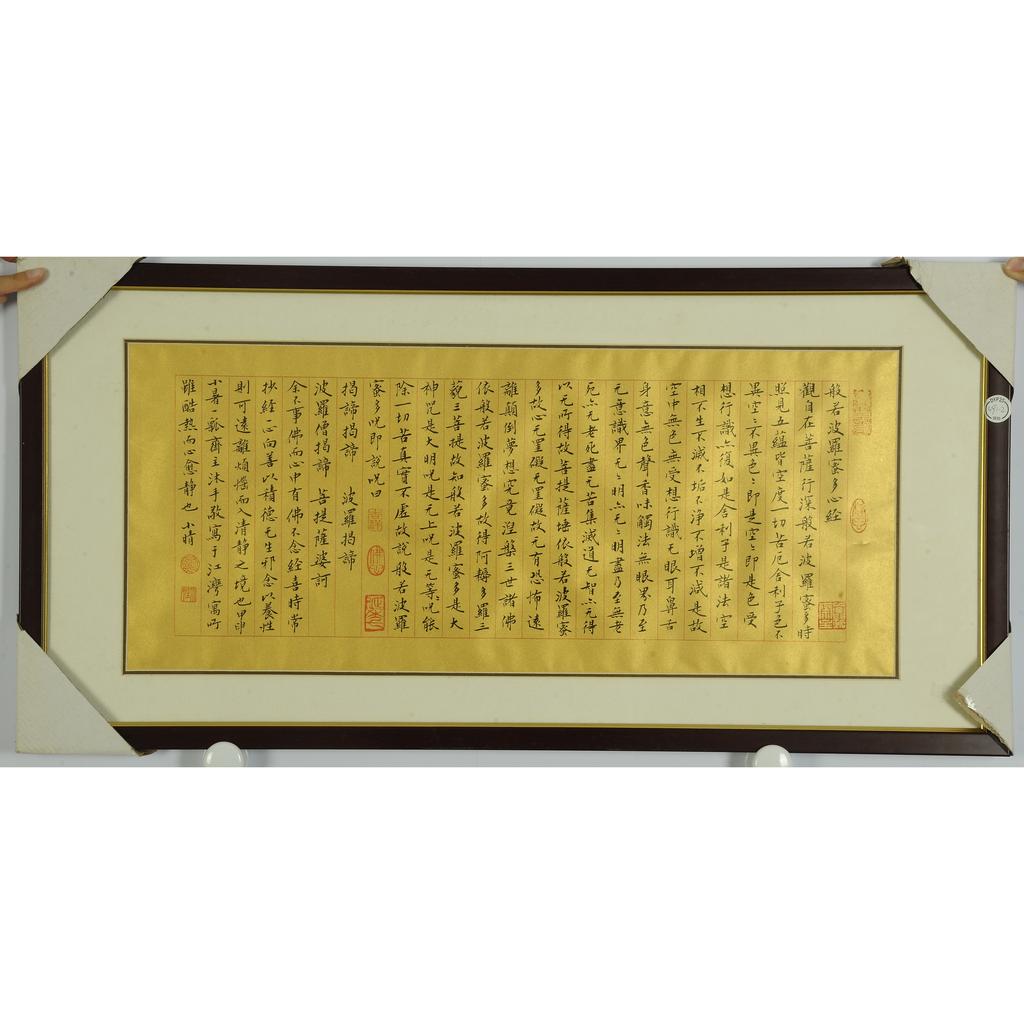 般若波羅蜜多心経
觀自在菩薩行深般若波羅蜜多時
照見五蘊皆空度一切苦厄舍利子色不
異空空不異色色即是空空即是色受
想行識亦復如是舍利子是諸法空
相不生不滅不垢不淨不增不減是故
空中無色無受想行識无眼耳鼻舌
身意無色聲香味觸法無眼界乃至
无意識界无无明亦无无明盡乃至無老
死亦无老死盡无苦集滅道无智亦无得
以无所得故菩提薩埵依般若波羅蜜
多故心无罣礙无罣礙故无有恐怖遠
離顛倒夢想究竟涅槃三世諸佛
依般若波羅蜜多故得阿耨多羅三
藐三菩提故知般若波羅蜜多是大
神咒是大明咒是无上咒是无等等咒能
除一切苦真實不虛故說般若波羅
蜜多咒即說咒曰
揭諦揭諦 波羅揭諦
波羅僧揭諦 菩提薩婆訶
余不事佛而心中有佛不念経喜時常
抄経心向善以積德无生邪念以養性
則可遠離煩惱而入清静之境也甲申
小暑一瓢齋主沐手敬寫于江灣寓所
雖酷熱而心愈静也 小晴